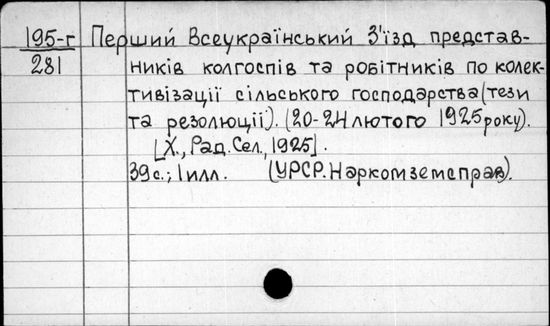 195-г Перший Всеукраїнський З'їзд представ-
281 ників колгоспів та робітників по колек-
тивізації сільського господарства (тези
та резолюції). (20-24 лютого 1925 року).
[Х., Рад. Сел., 1925].
39с.; 1 илл. (УРСР. Наркомземсправ).